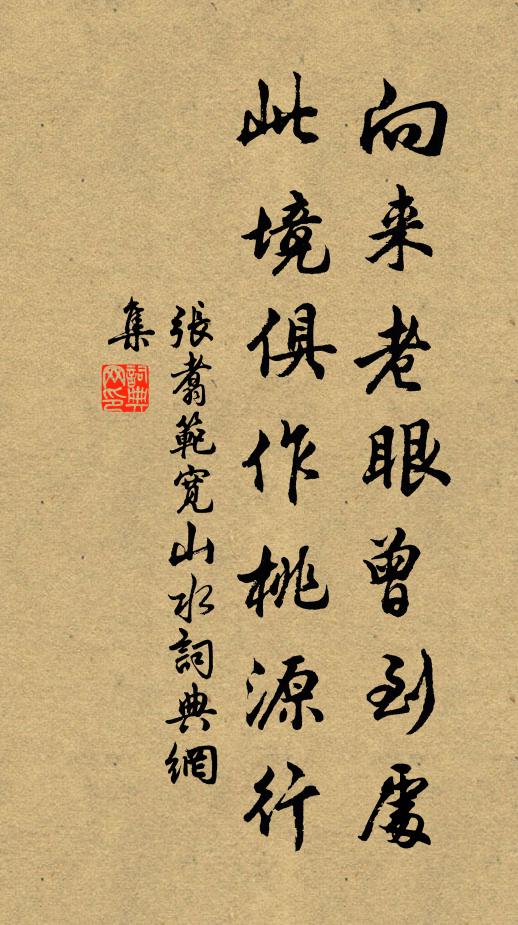 向来老眼曾到處
此境俱作桃源行
張翥範寬山水詞典網
集
詞典网印